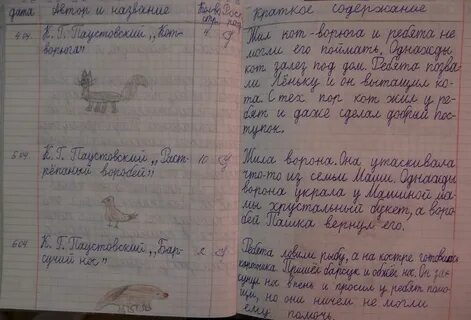 дата Автор и название Кол-во стр.
краткое содержание
4.04. К. Г. Паустовский „Кот-
ворюга"
4
Жил кот-ворюга и ребята не
могли его поймать. Однажды
кот залез под дом. Ребята позва
ли Лёньку и он вытащил ко
та. С тех пор кот жил у ре
бят и даже сделал добрый пос
тупок.
5.04. К. Г. Паустовский „Раст-
рёпаный воробей"
10
Жила ворона. Она утаскивала
что-то из семьи Маши. Однажды
ворона украла у Машиной ма-
мы хрустальный букет, а воро
бей Пашка вернул его.
6.04. К. Г. Паустовский „Бар-
сучий нос"
2
Ребята ловили рыбу, а на костре готовилась
картошка. Пришёл барсук и обжёг нос. Он за
сунул нос в пень и просил у ребят помо
щи, но они ничем не могли
ему помочь.